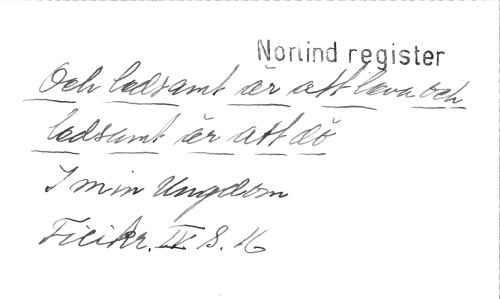 Norlind register
Och ledsamt är att leva och
ledsamt är att dö
I min Ungdom
IV S. 16